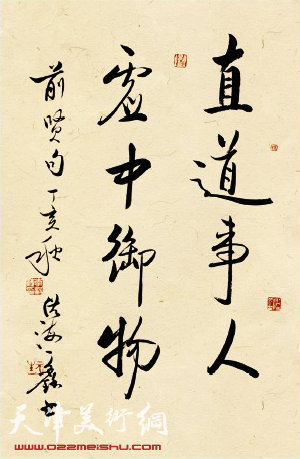 直道事人
虚中御物
前贤句丁亥秋
天津美術網
www.022meishu.com